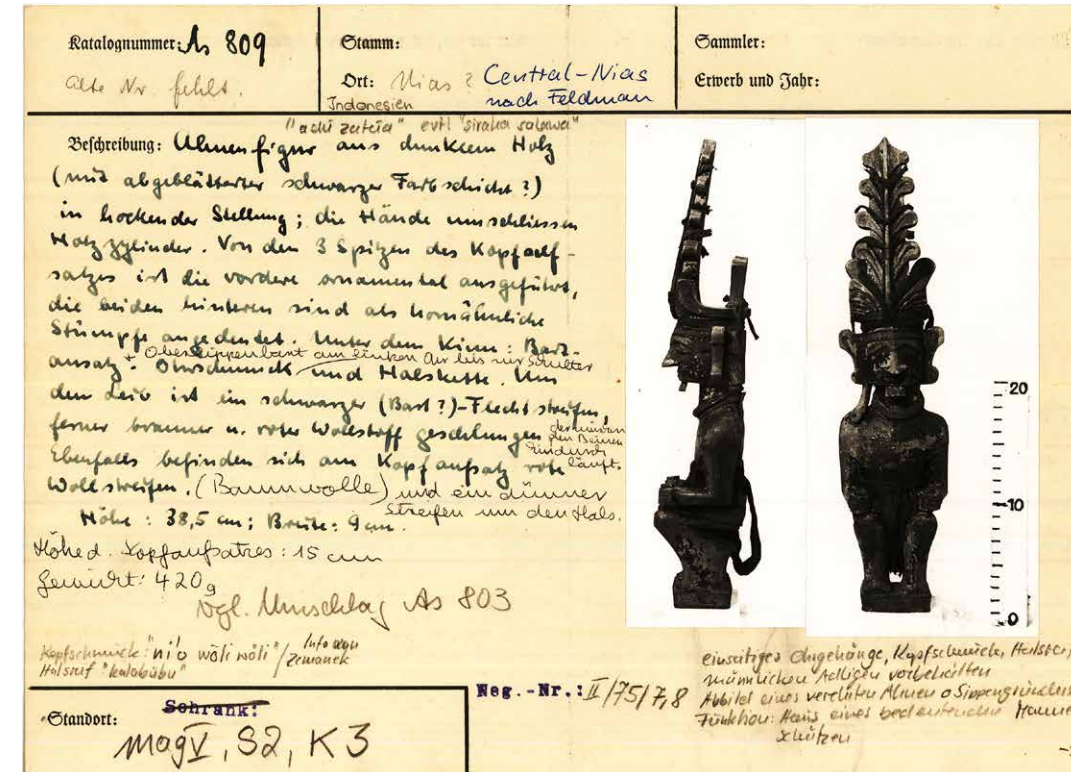 Katalognummer: As 809
alte Nr. fehlt.
Stamm:
Ort: Nias? Central-Nias
nach Feldman
Indonesien
Sammler:
Erwerb und Jahr:
"adu zatua" evtl "siraha salawa"
Beschreibung: Ahnenfigur aus dunklem Holz
(mit abgeblätterter schwarzer Farbschicht?)
in hockender Stellung; die Hände umschliessen
Holzzylinder. Von den 3 Spitzen des Kopfauf-
satzes ist die vordere ornamental ausgeführt,
die beiden hinteren sind als hornähnliche
Stümpfe angedeutet. Unter dem Kinn: Bart-
ansatz + Oberlippenbart am linken Ohr bis zur Schulter
Ohrschmuck und Halskette. Um
den Leib ist ein schwarzer (Bast?)-Flechtstreifen,
ferner brauner u. roter Wollstoff geschlungen
den Beinen
hindurch
läuft.
Ebenfalls befinden sich am Kopfaufsatz rote
Wollstreifen. (Baumwolle) und ein dünner
Streifen um den Hals.
Höhe: 38,5 cm; Breite: 9 cm.
Höhe d. Kopfaufsatzes: 15 cm
Gewicht: 420g
vgl. Umschlag As 803
Kopfschmuck: "ni'o wöli wöli" / Info von
Zemanek
Halsreif "kalabubu"
20
10
0
einseitiges Ohrgehänge, Kopfschmuck, Halsreif,
männlichen Adligen vorbehalten
Abbild eines verehrten Ahnen o Sippengründers
Funktion: Haus eines bedeutenden Manne
schützen
Neg.-Nr.: II/75/7,8
Standort: Schrank:
Mag V, S2, K3